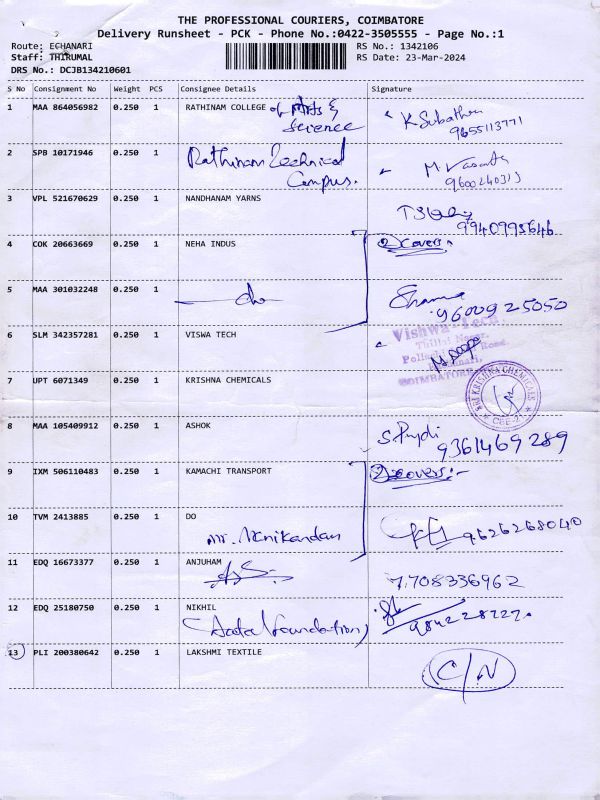 THE PROFESSIONAL COURIERS, COIMBATORE
Delivery Runsheet - PCK - Phone No.:0422-3505555 - Page No.:1
Route: ECHANARI
Staff: THIRUMAL
DRS No.: DCJB134210601
RS No.: 1342106
RS Date: 23-Mar-2024
S No Consignment No Weight PCS Consignee Details Signature
1 MAA 864056982 0.250 1 RATHINAM COLLEGE of Arts &
Science
K Subathra
9655113771
2 SPB 10171946 0.250 1 Rathinam Technical
Campus.
M
9600240313
3 VPL 521670629 0.250 1 NANDHANAM YARNS
9940995646
4 COK 20663669 0.250 1 NEHA INDUS
② covers
5 MAA 301032248 0.250 1 do
9600925050
6 SLM 342357281 0.250 1 VISWA TECH
Vishwa Tech
Thillai Nagar,
Road
COIMBATORE
7 UPT 6071349 0.250 1 KRISHNA CHEMICALS
SRI KRISHNA CHEMICALS
CBE-21
8 MAA 105409912 0.250 1 ASHOK
9361469289
9 IXM 506110483 0.250 1 KAMACHI TRANSPORT
② covers:-
10 TVM 2413885 0.250 1 DO
mr. Manikandan
9626268040
11 EDQ 16673377 0.250 1 ANJUHAM
7708336962
12 EDQ 25180750 0.250 1 NIKHIL
Foundation)
13 PLI 200380642 0.250 1 LAKSHMI TEXTILE
C/N